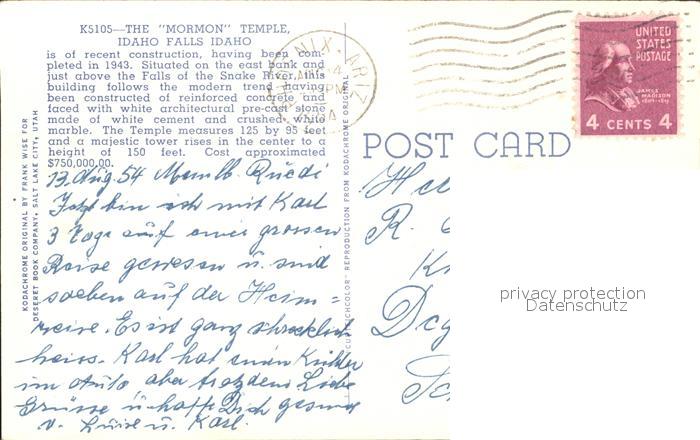 K5105—THE "MORMON" TEMPLE,
IDAHO FALLS IDAHO
is of recent construction, having been com-
pleted in 1943. Situated on the east bank and
just above the Falls of the Snake River, this
building follows the modern trend having
been constructed of reinforced concrete and
faced with white architectural pre-cast stone
made of white cement and crushed white
marble. The Temple measures 125 by 95 feet
and a majestic tower rises in the center to a
height of 150 feet. Cost approximated
$750,000.00.
13. Aug. 54 Mein lb. Ruedi
Jetzt bin ich mit Karl
3 Tage auf einer grossen
Reise gewesen u. sind
soeben auf der Heim=
reise. Es ist ganz schrecklich
heiss. Karl hat einen Kühler
im Auto aber trotzdem Liebe
Grüsse u. hoffe Dich gesund
v. Luise u. Karl.
KODACHROME ORIGINAL BY FRANK WISE FOR
DESERET BOOK COMPANY, SALT LAKE CITY, UTAH
REPRODUCTION FROM KODACHROME ORIGINAL
PHOENIX, ARIZ
PM
UNITED
STATES
POSTAGE
JAMES
MADISON
4 CENTS 4
POST CARD
R.
privacy protection
Datenschutz